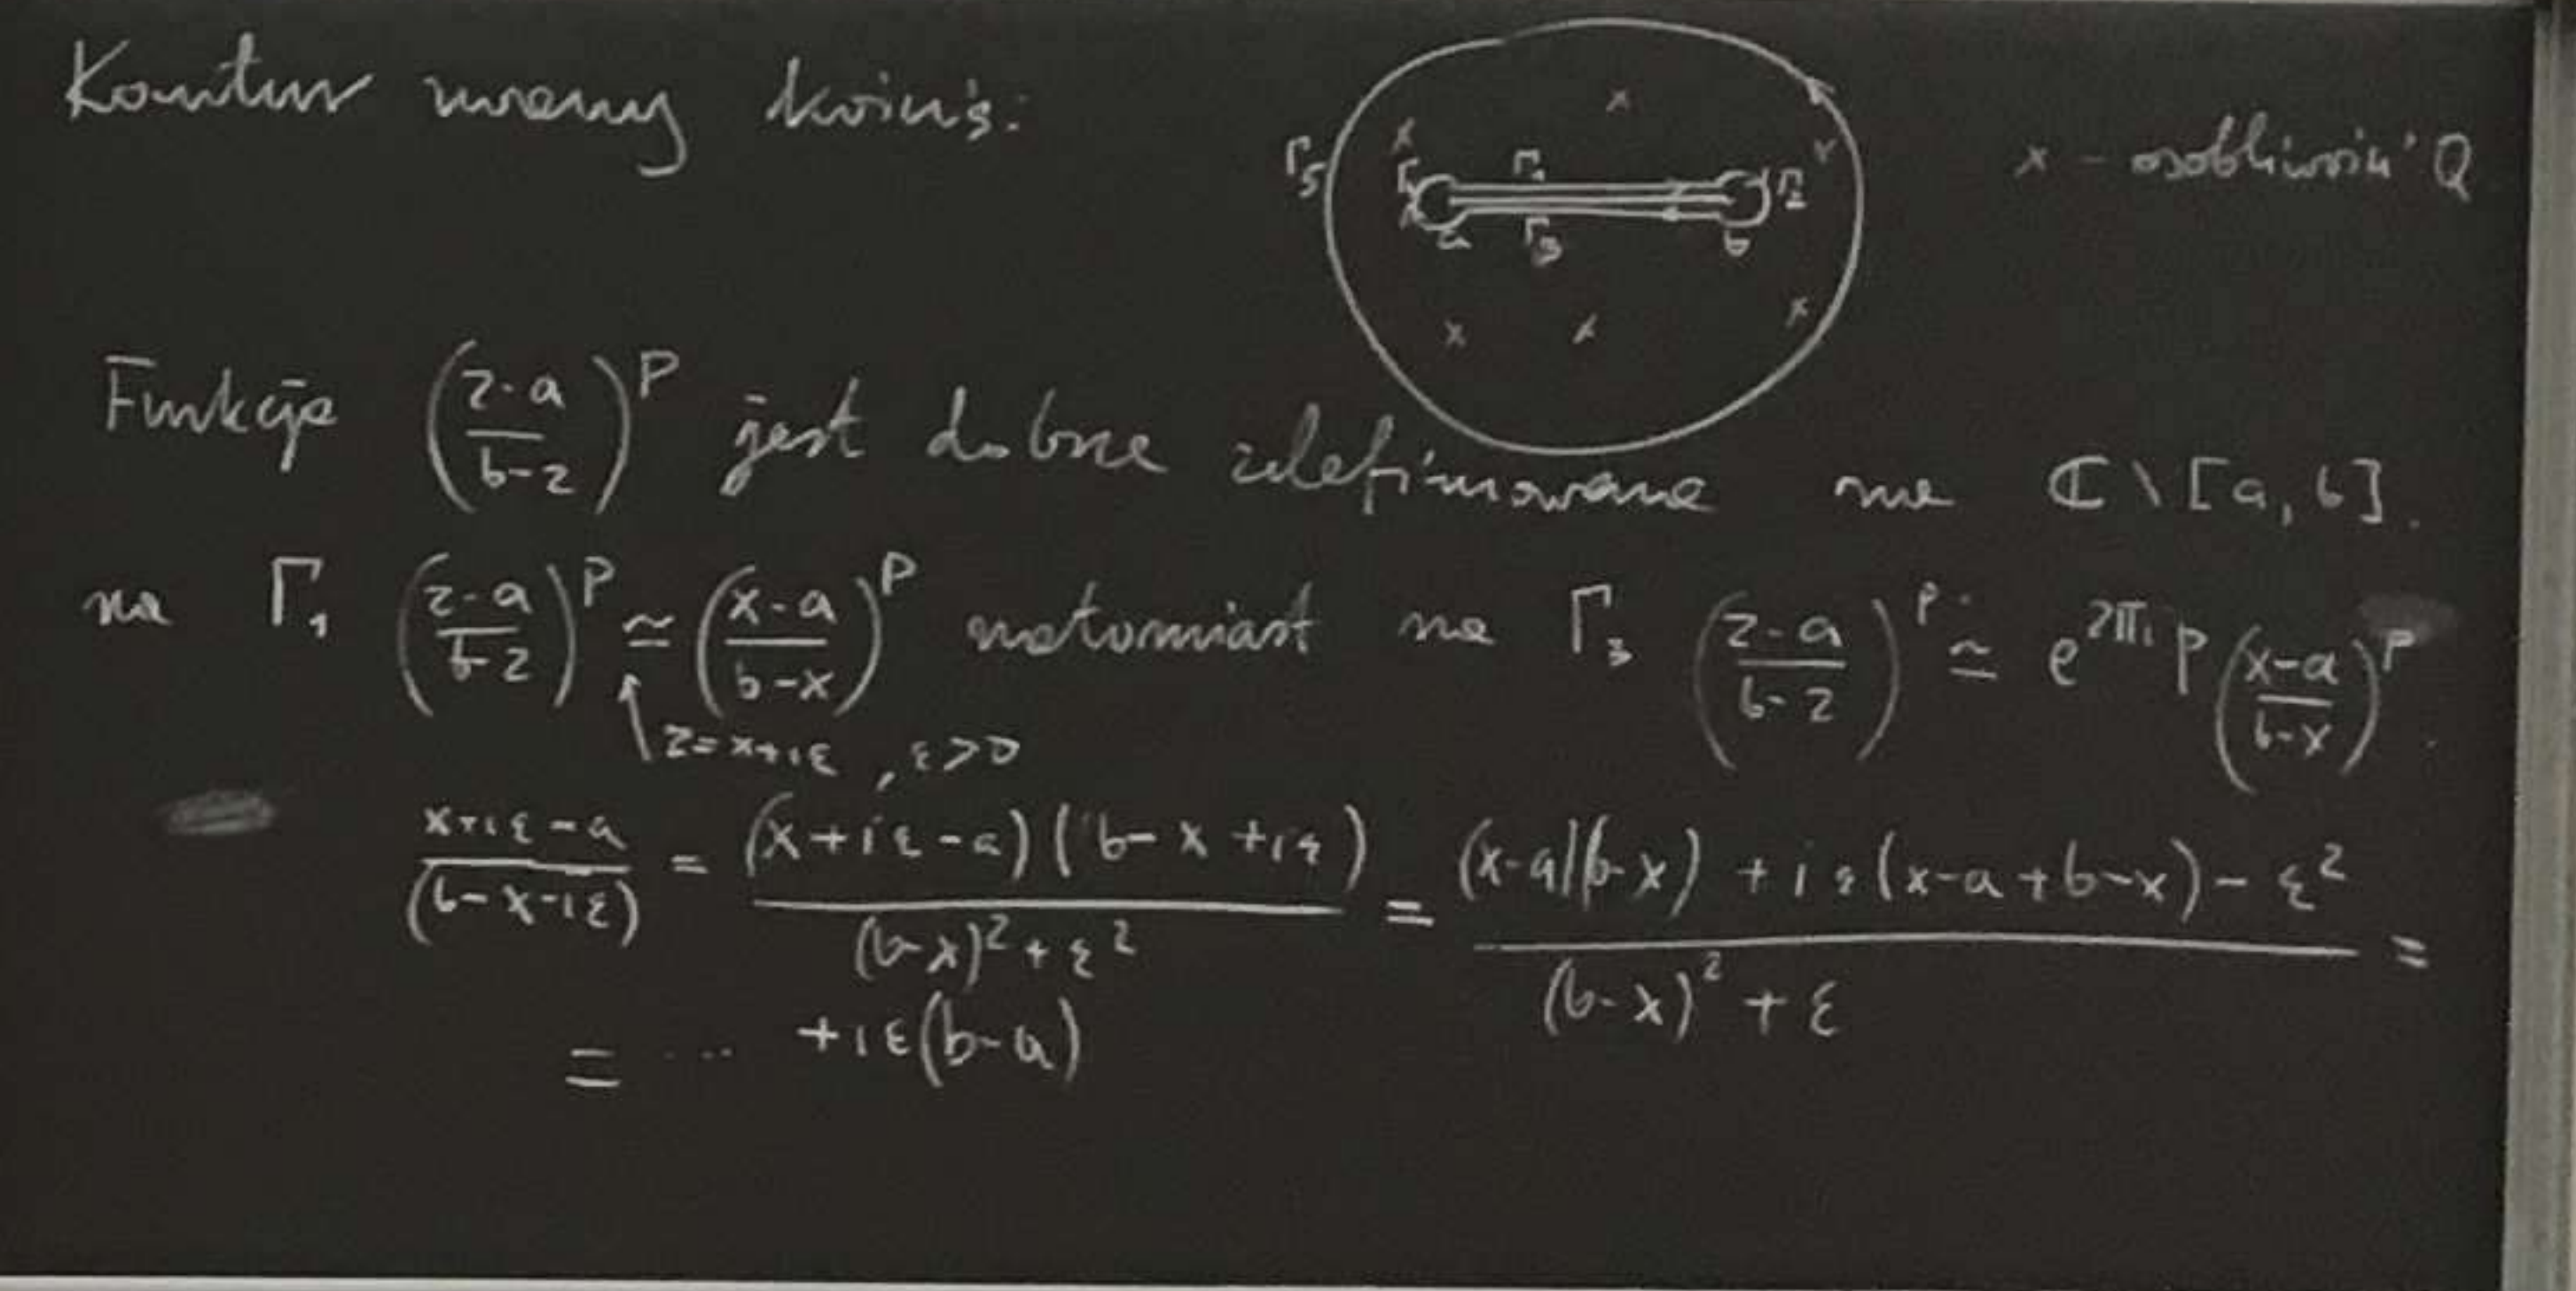 Kontur zwany kością:
Γ₅ Γ₄ Γ₁ Γ₂ a Γ₃ b
x - osobliwości Q
Funkcja ((z-a)/(b-z))^p jest dobrze zdefiniowana na ℂ\[a,b].
na Γ₁ ((z-a)/(b-z))^p ≃ ((x-a)/(b-x))^p natomiast na Γ₃ ((z-a)/(b-z))^p ≃ e^{2πi p} ((x-a)/(b-x))^p.
↑ z=x+iε, ε>0
(x+iε-a)/(b-x-iε) = (x+iε-a)(b-x+iε)/((b-x)²+ε²) = ((x-a)(b-x)+iε(x-a+b-x)-ε²)/((b-x)²+ε) =
= ... +iε(b-a)